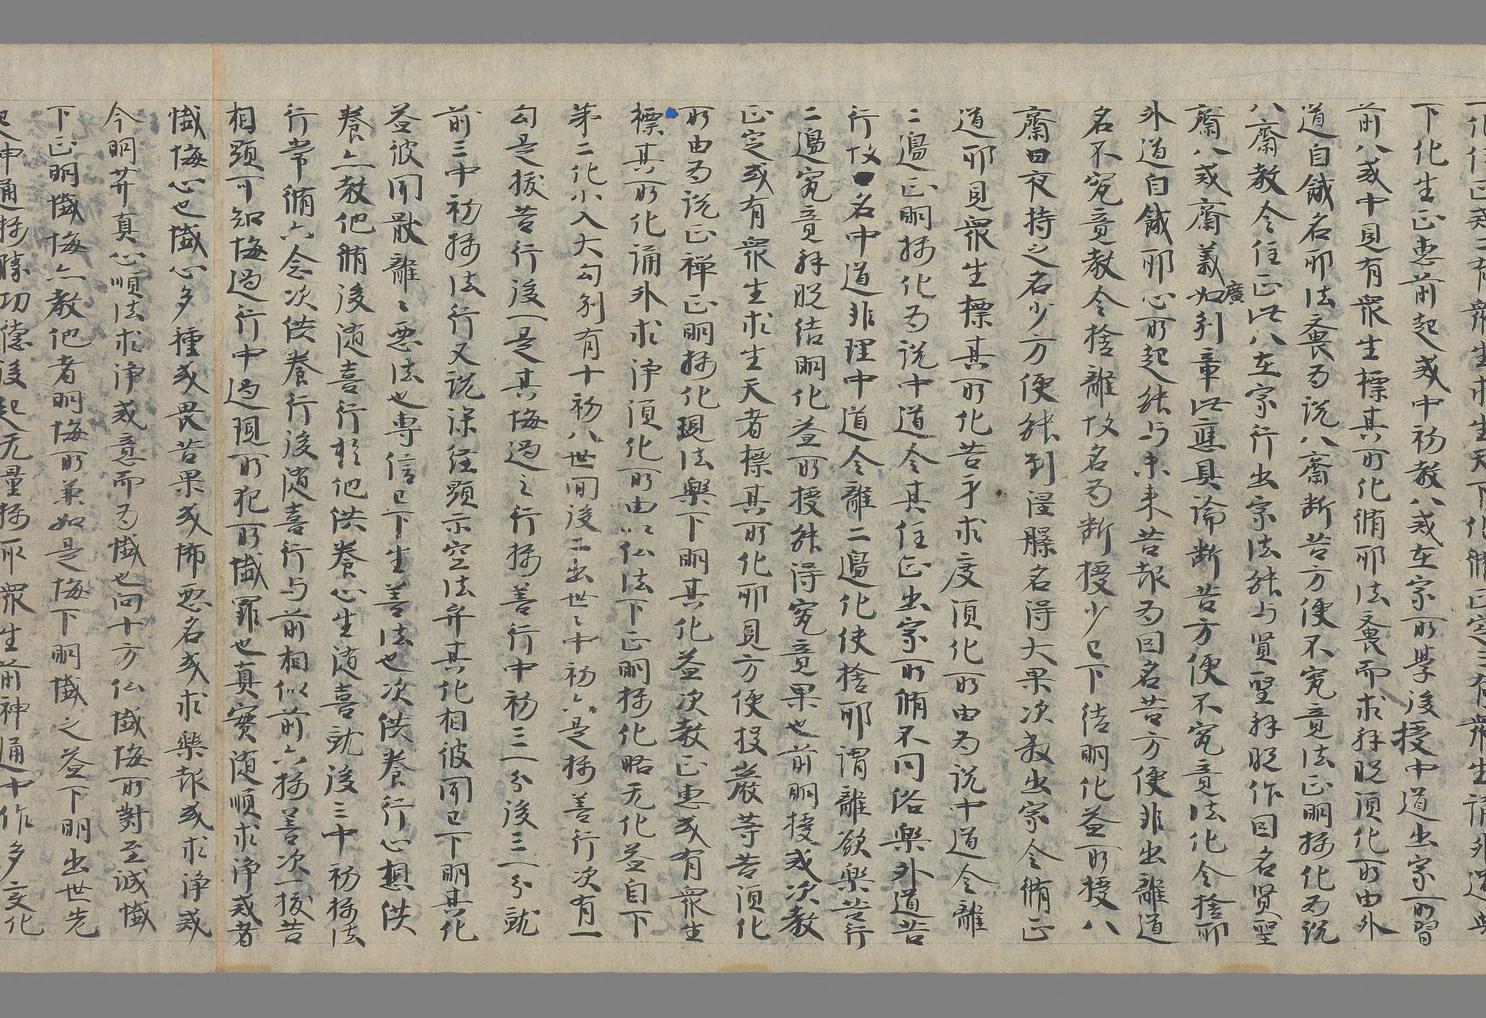 下化生正惠前起或中初教八戒在家所學後授中道出家所習
前八戒中見有衆生標其所化脩耶法喪而求解脱須化所由外
道自餓名耶法喪為説八齋断苦方便不究竟法正明攝化為説
八齋教令住正此八在家行出家法能与賢聖解脱作因名賢聖
齋八戒齋義如廣別章此應具論断苦方便不究竟法化令捨耶
外道自餓耶心所起能与未来苦報為因名苦方便非出離道
名不究竟教令捨離故名為断授少已下結明化益所授八
齋日夜持之名少方便能到涅槃名得大果次教出家令脩正
道耶見衆生標其所化苦身求度須化所由為説中道令離
二邊正明攝化為説中道令其住正出家所脩不同俗樂外道苦
行故名中道非理中道令離二邊化使捨耶謂離欲樂苦行
二邊究竟解脱結明化益所授能得究竟果也前明授戒次教
正定或有衆生求生天者標其所化耶見方便投巖等苦須化
所由為説正禪正明攝化現法樂下明其化益次教正惠或有衆生
標其所化誦外求浄須化所由以仏法下正明攝化略无化益自下
第二化小入大勾別有十初八世間後二出世世中初六是攝善行次有一
勾是拔苦行後一是其悔過之行攝善行中初三一分後三一分就
前三中初攝法行又説深経顯示空法弁其化相彼聞已下明其化
益彼聞散離離悪法也専信已下生善法也次供養行心想供
養亦教他脩後随喜行於他供養心生随喜就後三中初攝法
行常脩六念次供養行後随喜行与前相似前六攝善次一拔苦
相顕可知悔過行中過現所犯所懺罪也真實随順求浄戒者
懺悔心也懺心多種或畏苦果或怖悪名或求樂報或求浄戒
今明并真心順法求浄戒意而為懺也向十方仏懺悔所對至誠懺
下正明懺悔亦教他者明悔所兼如是悔下明懺之益下明出世先
起神通攝勝功德後起无量攝取衆生前神通中作多文化